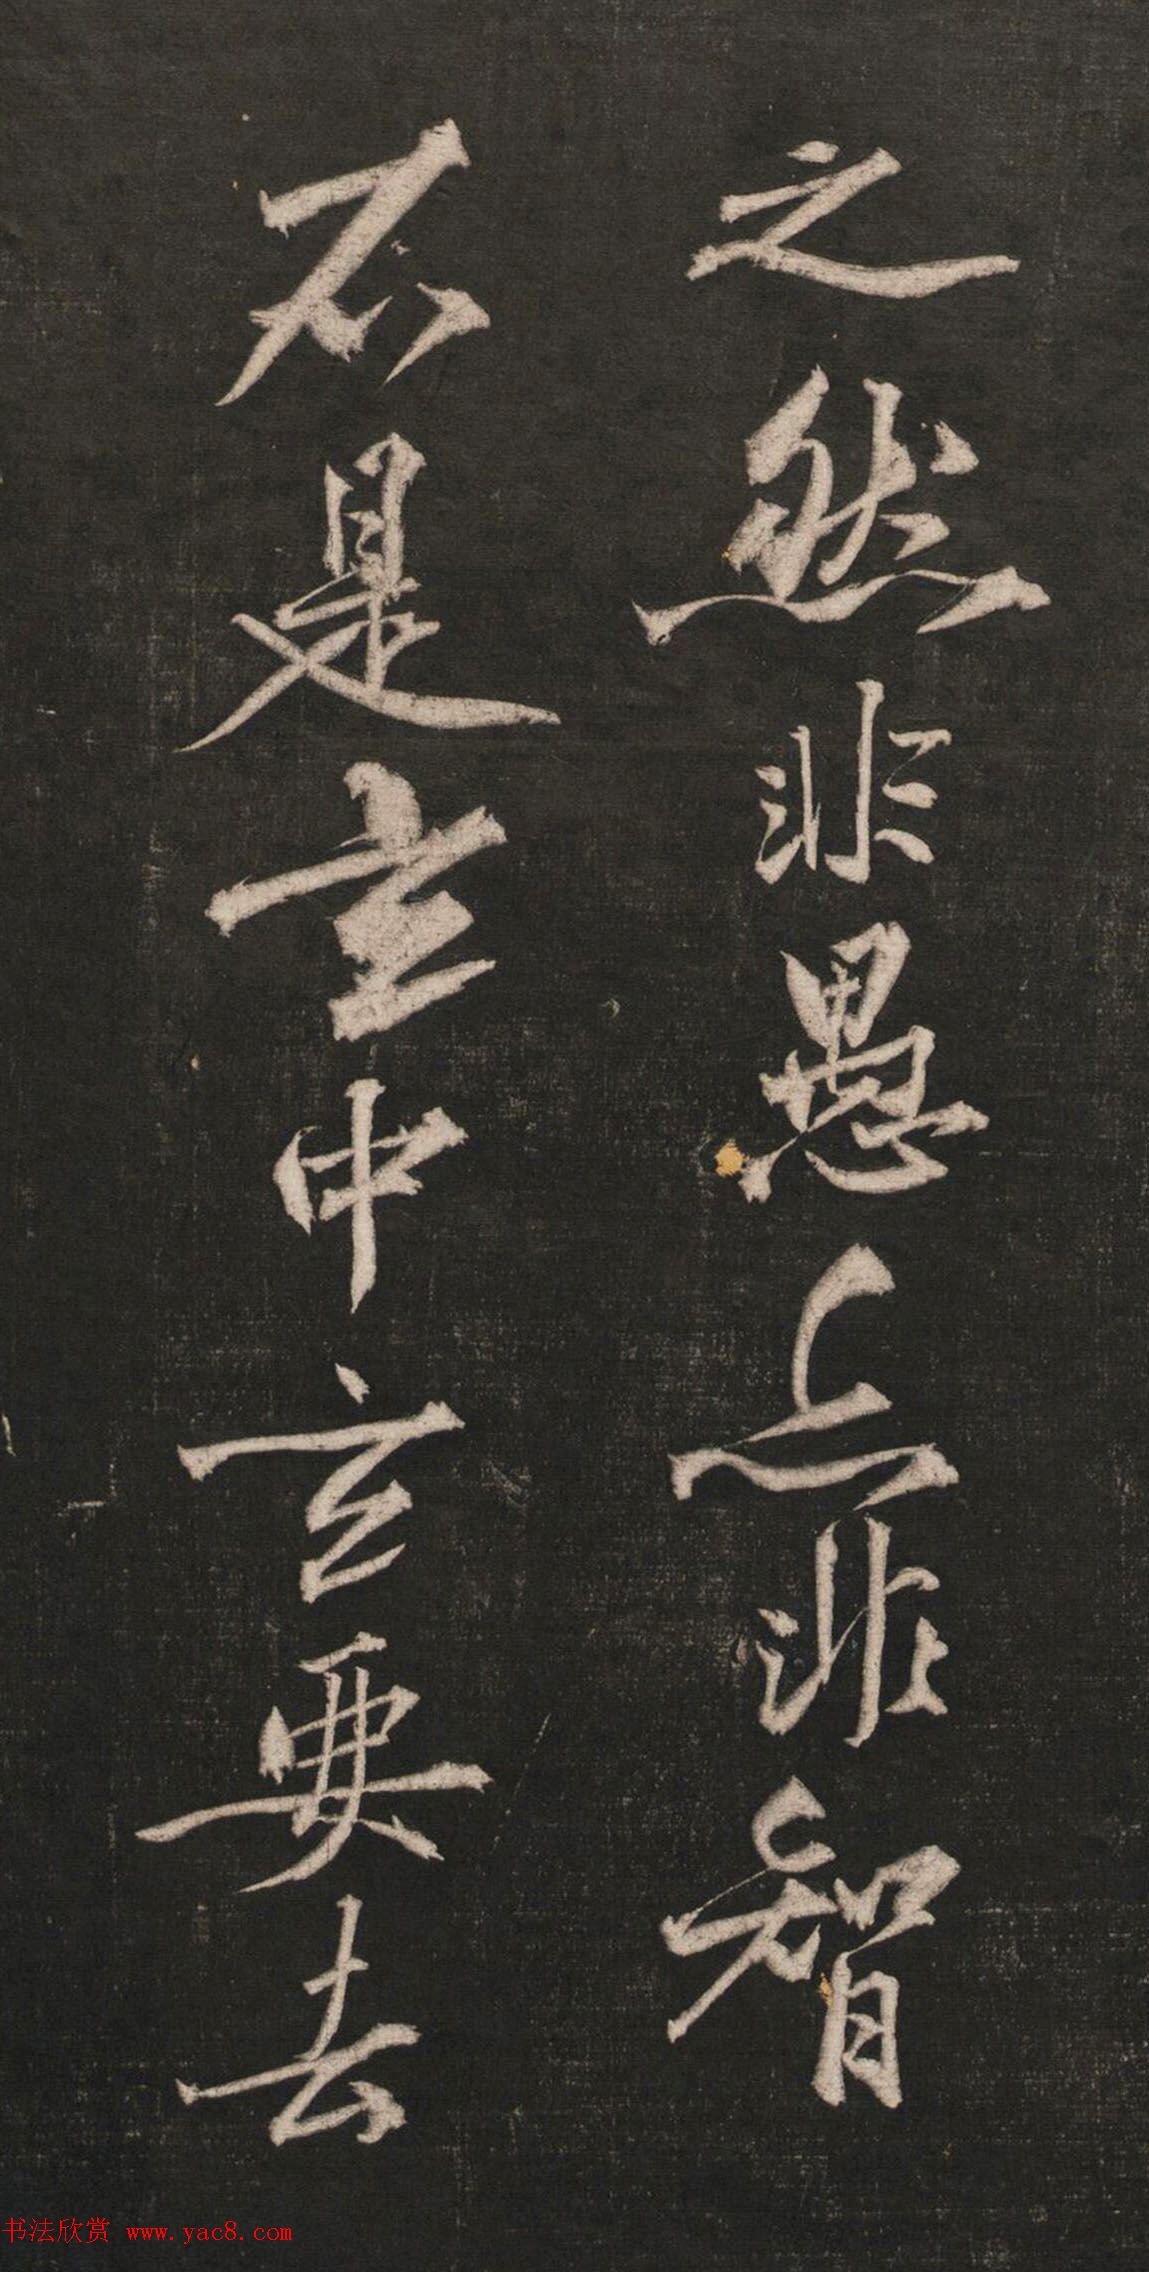 之然非愚上非智
不是玄中玄要去
书法欣赏 www.yac8.com